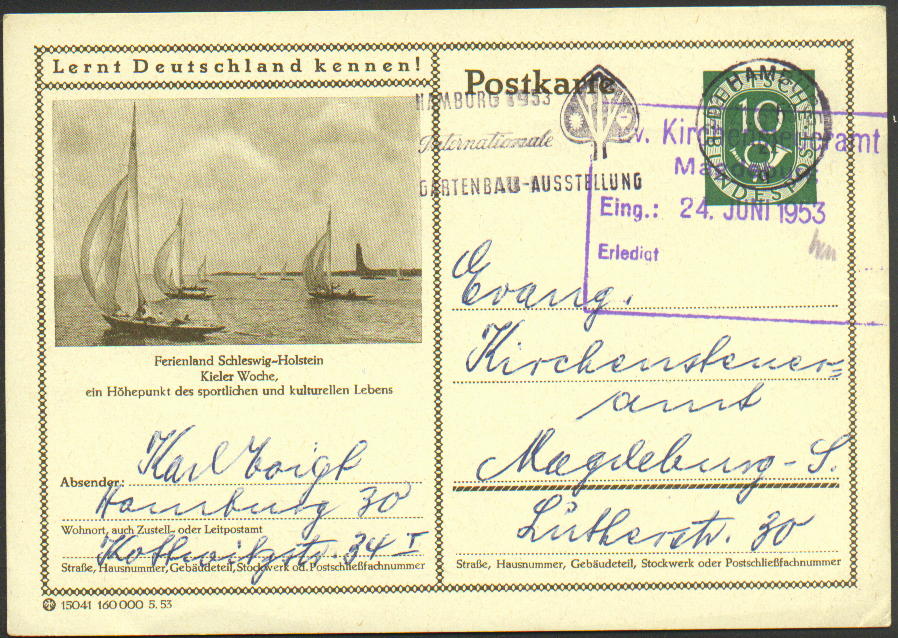 Lernt Deutschland kennen!
Ferienland Schleswig-Holstein
Kieler Woche,
ein Höhepunkt des sportlichen und kulturellen Lebens
Absender: Karl Voigt
Hamburg 20
Wohnort, auch Zustell- oder Leitpostamt
34 I
Straße, Hausnummer, Gebäudeteil, Stockwerk od. Postschließfachnummer
15041 160 000 5. 53
Postkarte
HAMBURG 1953
Internationale
GARTENBAU-AUSSTELLUNG
HAMBURG
DEUTSCHE BUNDESPOST
10
Ev. Kirchensteueramt
Magdeburg
Eing.: 24. JUNI 1953
Erledigt
Evang.
Kirchensteuer=
amt
Magdeburg-S.
Lutherstr. 30
Straße, Hausnummer, Gebäudeteil, Stockwerk oder Postschließfachnummer